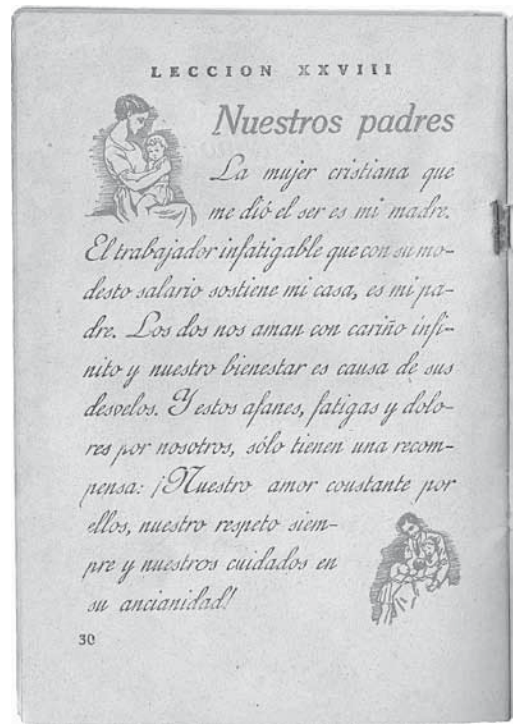 LECCION XXVIII
Nuestros padres
La mujer cristiana que
me dió el ser es mi madre.
El trabajador infatigable que con su mo-
desto salario sostiene mi casa, es mi pa-
dre. Los dos nos aman con cariño infi-
nito y nuestro bienestar es causa de sus
desvelos. Y estos afanes, fatigas y dolo-
res por nosotros, sólo tienen una recom-
pensa: ¡Nuestro amor constante por
ellos, nuestro respeto siem-
pre y nuestros cuidados en
su ancianidad!
30